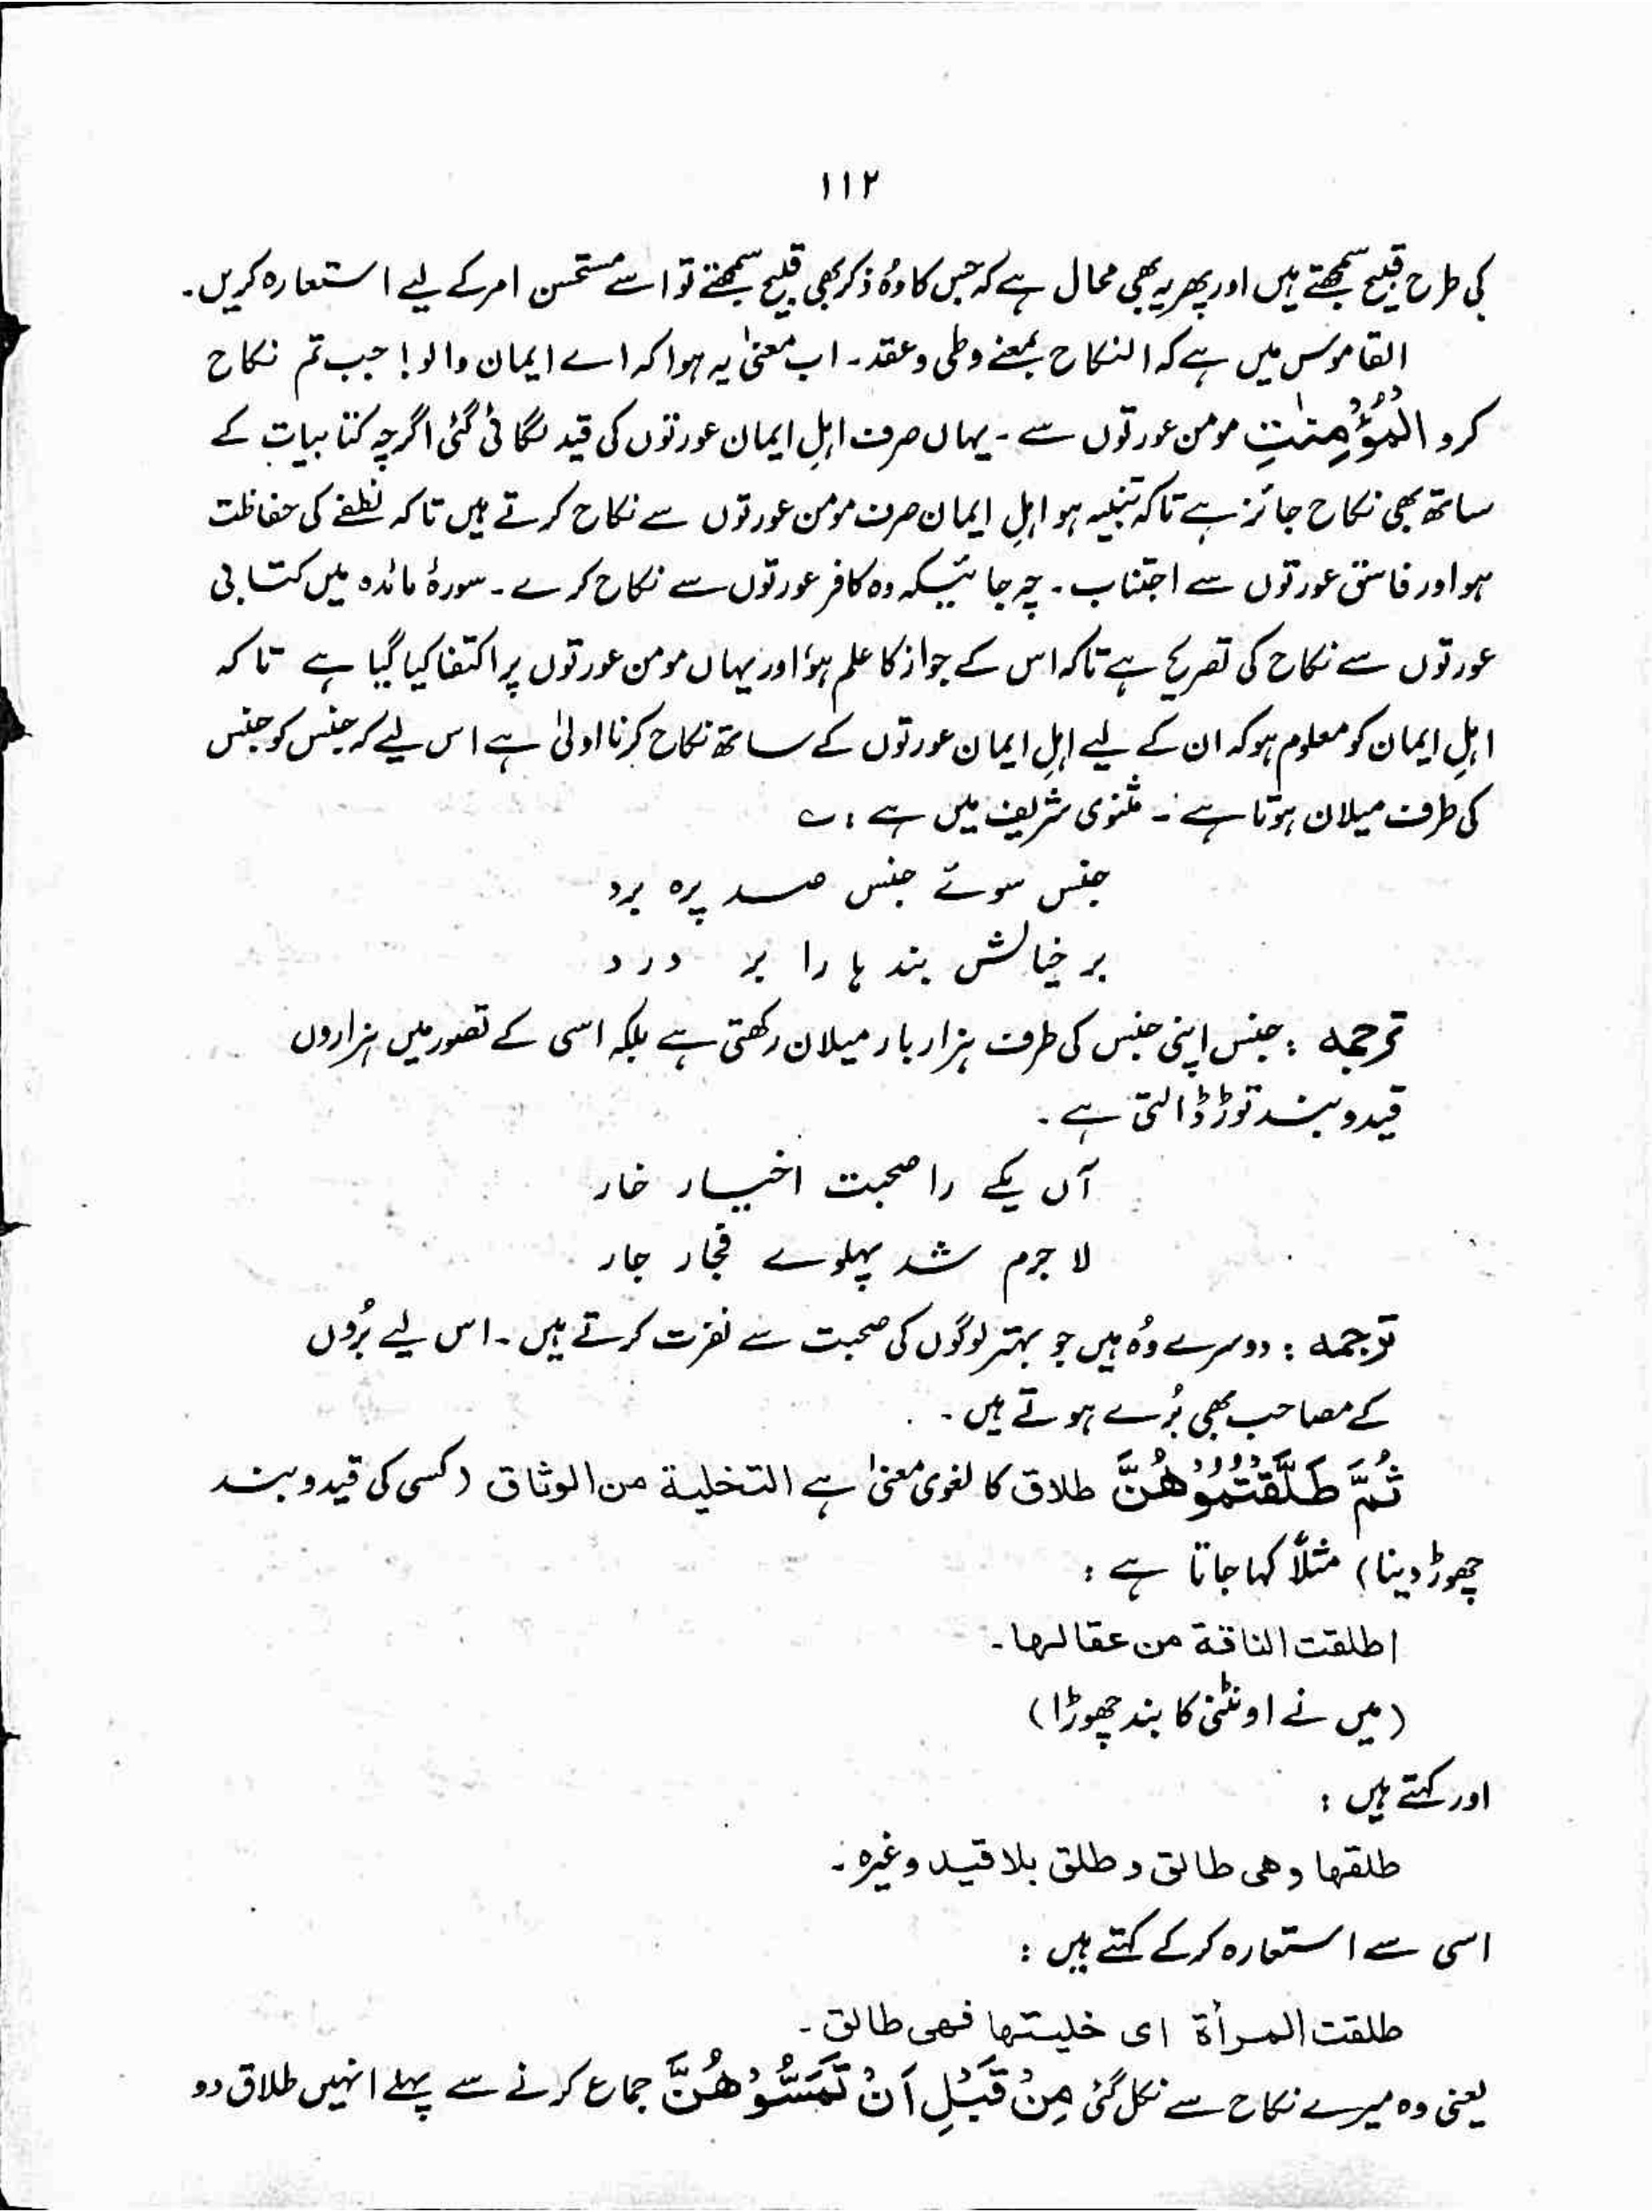 ۱۱۲
کی طرح قبیح سمجھتے ہیں اور پھر یہ بھی محال ہے کہ جس کا وُہ ذکر بھی قبیح سمجھتے تو اسے مستحسن امر کے لیے استعارہ کریں۔
القاموس میں ہے کہ النکاح بمعنے وطی و عقد۔ اب معنیٰ یہ ہوا کہ اے ایمان والو! جب تم نکاح
کرو الْمُؤْمِنٰتِ مومن عورتوں سے۔ یہاں صرف اہلِ ایمان عورتوں کی قید لگائی گئی اگرچہ کتابیات کے
ساتھ بھی نکاح جائز ہے تاکہ تنبیہ ہو اہلِ ایمان صرف مومن عورتوں سے نکاح کرتے ہیں تاکہ نطفے کی حفاظت
ہو اور فاسق عورتوں سے اجتناب۔ چہ جائیکہ وہ کافر عورتوں سے نکاح کرے۔ سورۂ مائدہ میں کتابی
عورتوں سے نکاح کی تصریح ہے تاکہ اس کے جواز کا علم ہو، اور یہاں مومن عورتوں پر اکتفا کیا گیا ہے تاکہ
اہلِ ایمان کو معلوم ہو کہ ان کے لیے اہلِ ایمان عورتوں کے ساتھ نکاح کرنا اولیٰ ہے اس لیے کہ جنس کو جنس
کی طرف میلان ہوتا ہے۔ مثنوی شریف میں ہے : ؎
جنس سوئے جنس صد پرہ برد
بر خیالش بند ہا را بر درد
ترجمہ : جنس اپنی جنس کی طرف ہزار بار میلان رکھتی ہے بلکہ اسی کے تصور میں ہزاروں
قید و بند توڑ ڈالتی ہے۔
آں یکے را صحبت اخیار خار
لا جرم شد پہلوے فجار جار
ترجمہ : دوسرے وُہ ہیں جو بہتر لوگوں کی صحبت سے نفرت کرتے ہیں۔ اس لیے بُروں
کے مصاحب بھی بُرے ہوتے ہیں۔
ثُمَّ طَلَّقْتُمُوْهُنَّ طلاق کا لغوی معنیٰ ہے التخلية من الوثاق (کسی کی قید و بند
چھوڑ دینا) مثلاً کہا جاتا ہے :
اطلقت الناقة من عقالها۔
(میں نے اونٹنی کا بند چھوڑا)
اور کہتے ہیں :
طلقها وهی طالق و طلق بلا قید وغیرہ۔
اسی سے استعارہ کرکے کہتے ہیں :
طلقت المرأة ای خلیتها فهی طالق۔
یعنی وہ میرے نکاح سے نکل گئی مِنْ قَبْلِ اَنْ تَمَسُّوْهُنَّ جماع کرنے سے پہلے انہیں طلاق دو